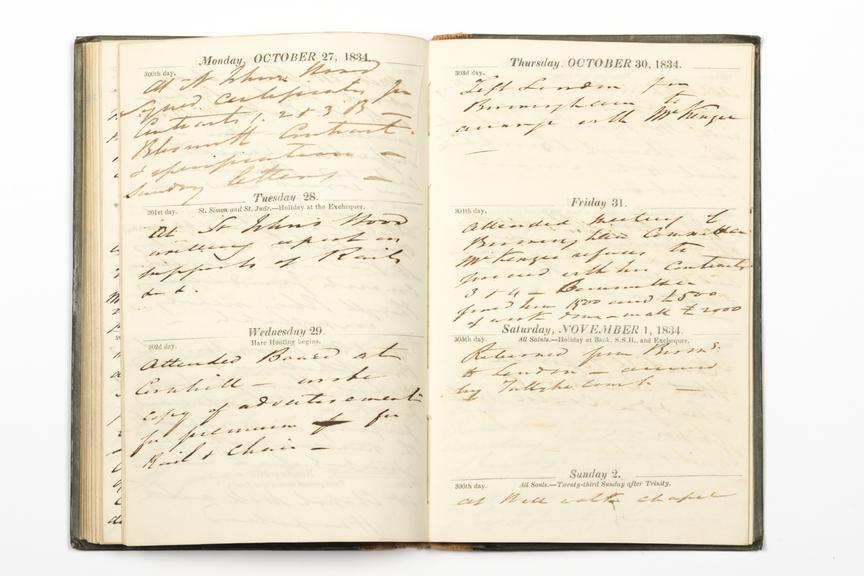 Monday, OCTOBER 27, 1834.
300th day.
At St Johns Wood
Signed certificates for
Contracts 1. 2 & 3 B —
Contract
& specification —
Sunday letters —
Tuesday 28.
301st day. St. Simon and St. Jude.—Holiday at the Exchequer.
At St Johns Wood
writing report on
supports of Rails
&c &.
Wednesday 29.
302d day. Hare Hunting begins.
Attended Board at
Cornhill — wrote
copy of advertisement
for premium for
Rail & Chair —
Thursday, OCTOBER 30, 1834.
303d day.
Left London for
Birmingham to
arrange with Mr Kenzie
—
Friday 31.
304th day.
Attended meeting of
Birmingham Committee
Mr Kenzie refuses to
proceed with his Contracts
3 & 4 — Committee
fined him 1500 and £500
of work done — £ 2000
Saturday, NOVEMBER 1, 1834.
305th day. All Saints.—Holiday at Bank, S.S.H., and Exchequer.
Returned from Birmg
to London —
by Tallyho coach —
Sunday 2.
306th day. All Souls.—Twenty-third Sunday after Trinity.
at chapel